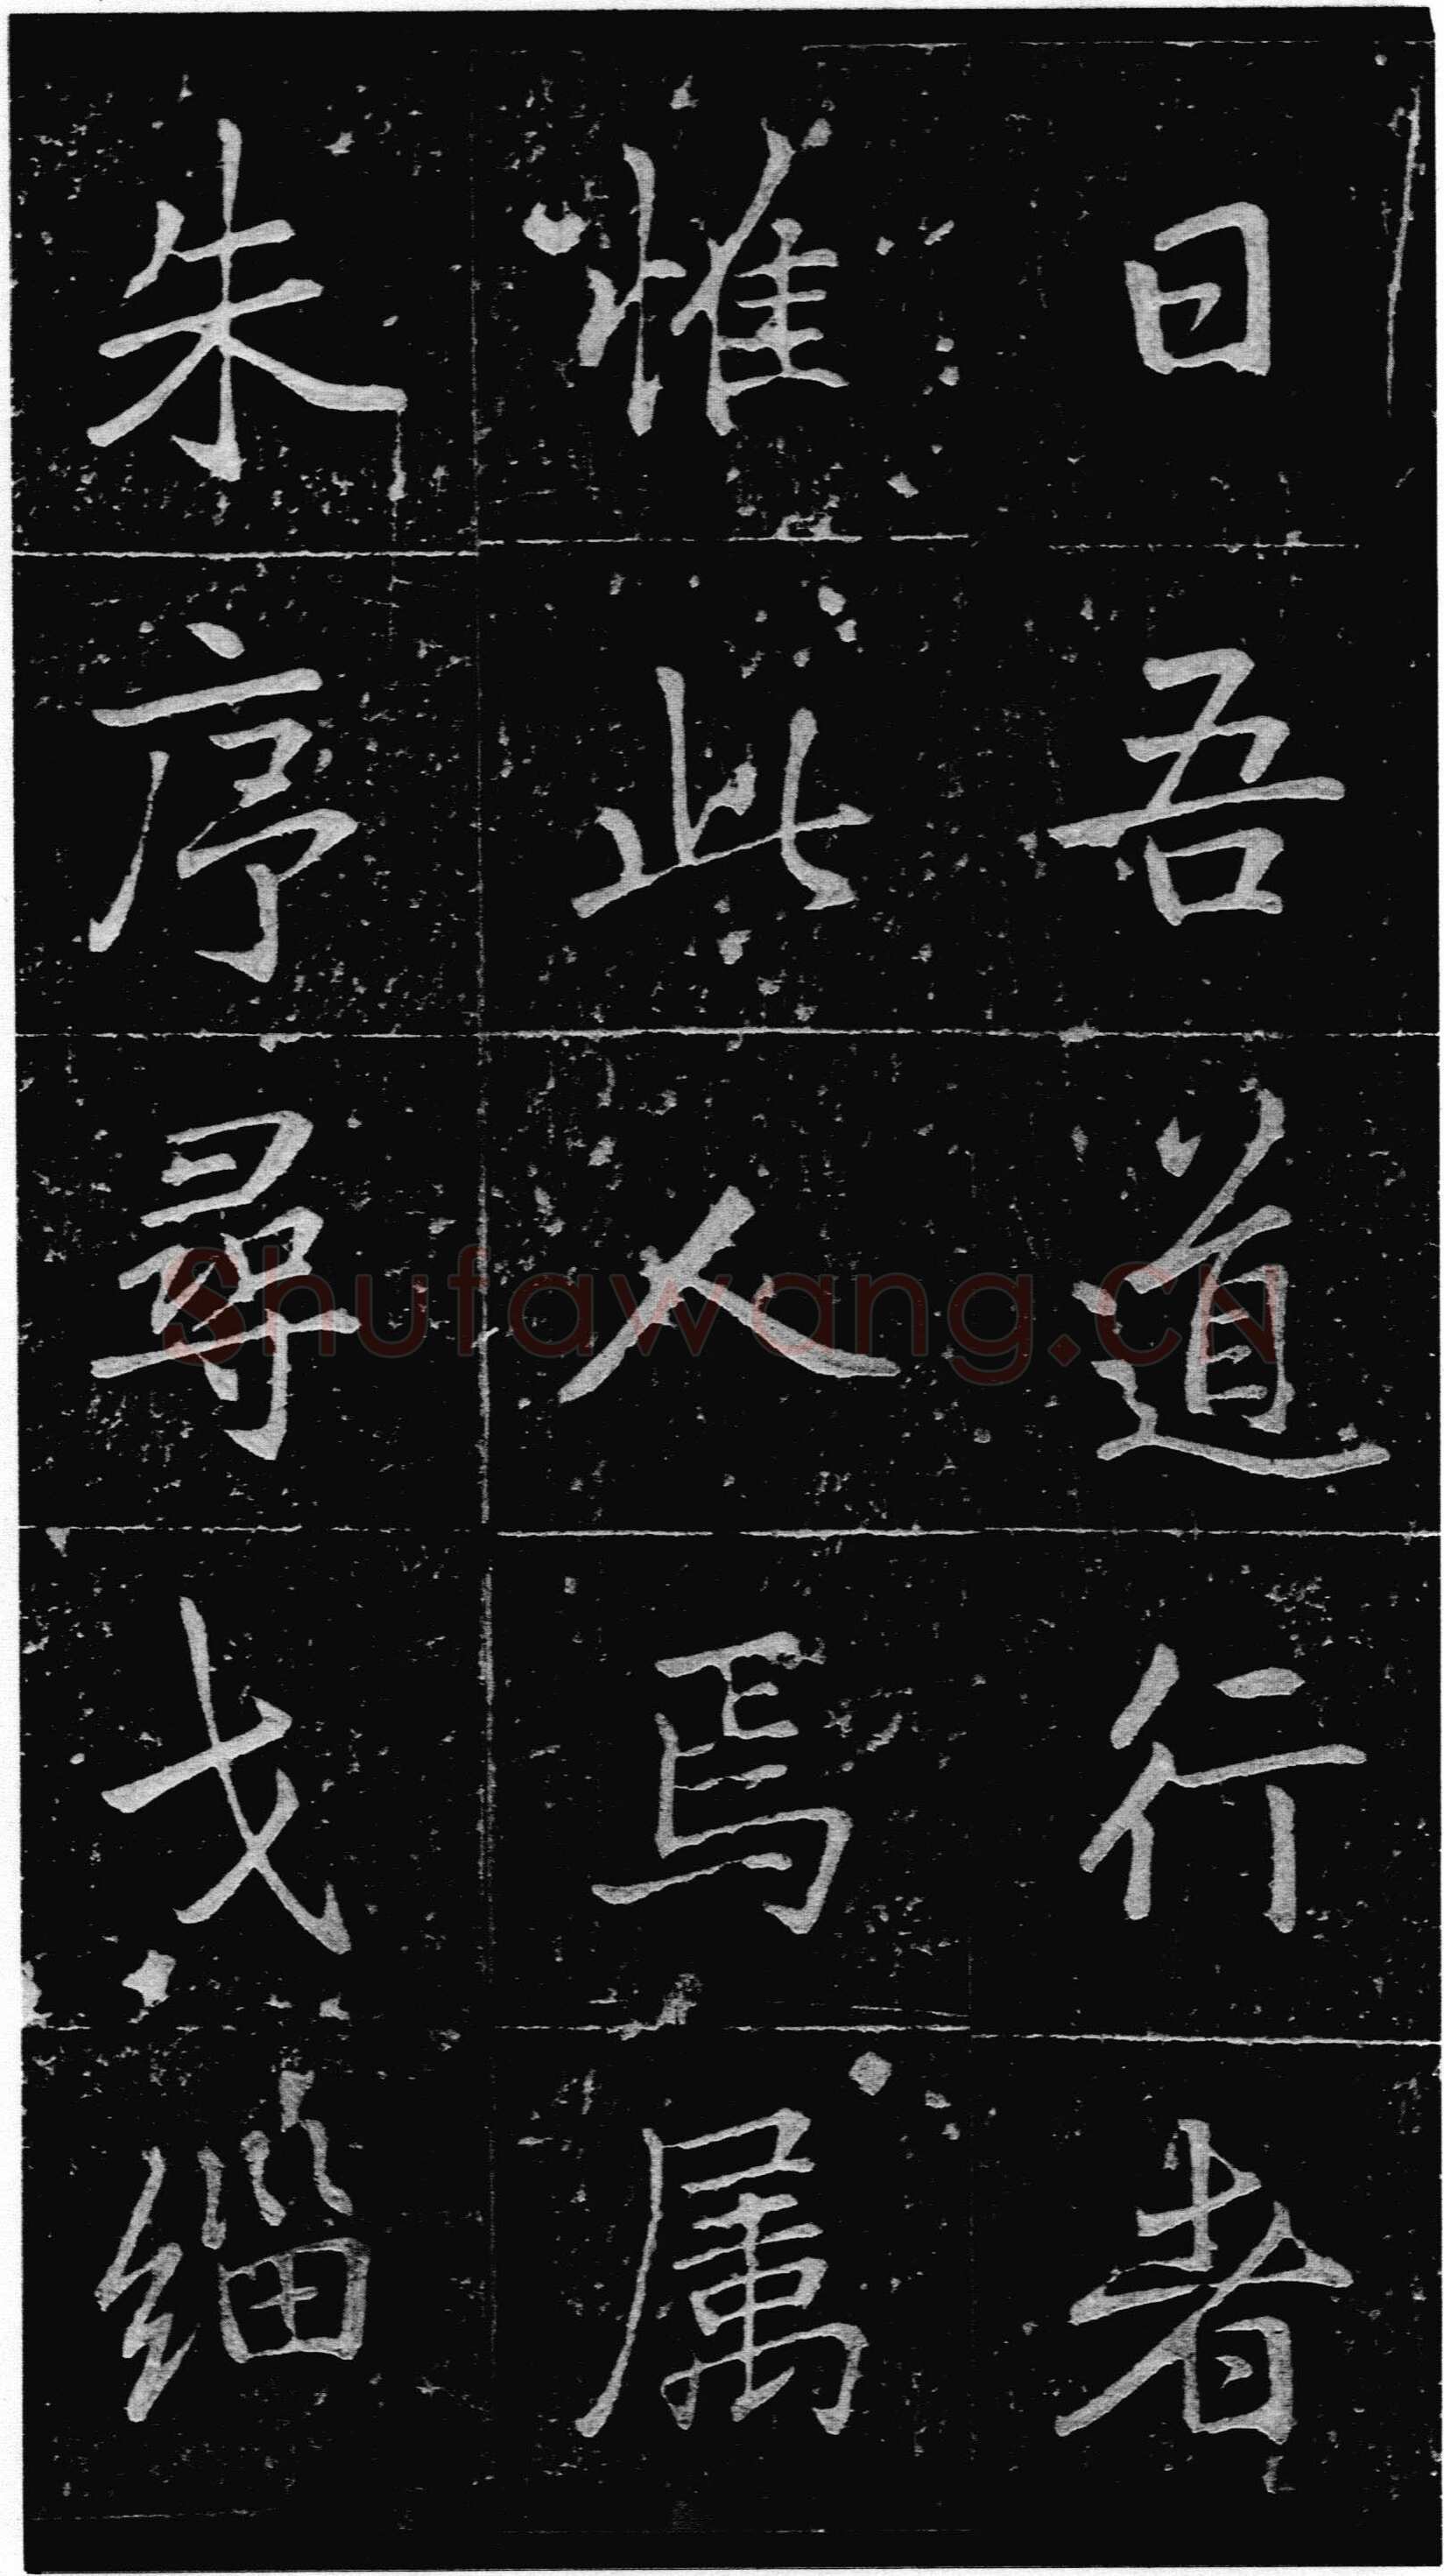 曰吾道行者
惟此人焉属
朱序尋戈緇
Shufawang.CN